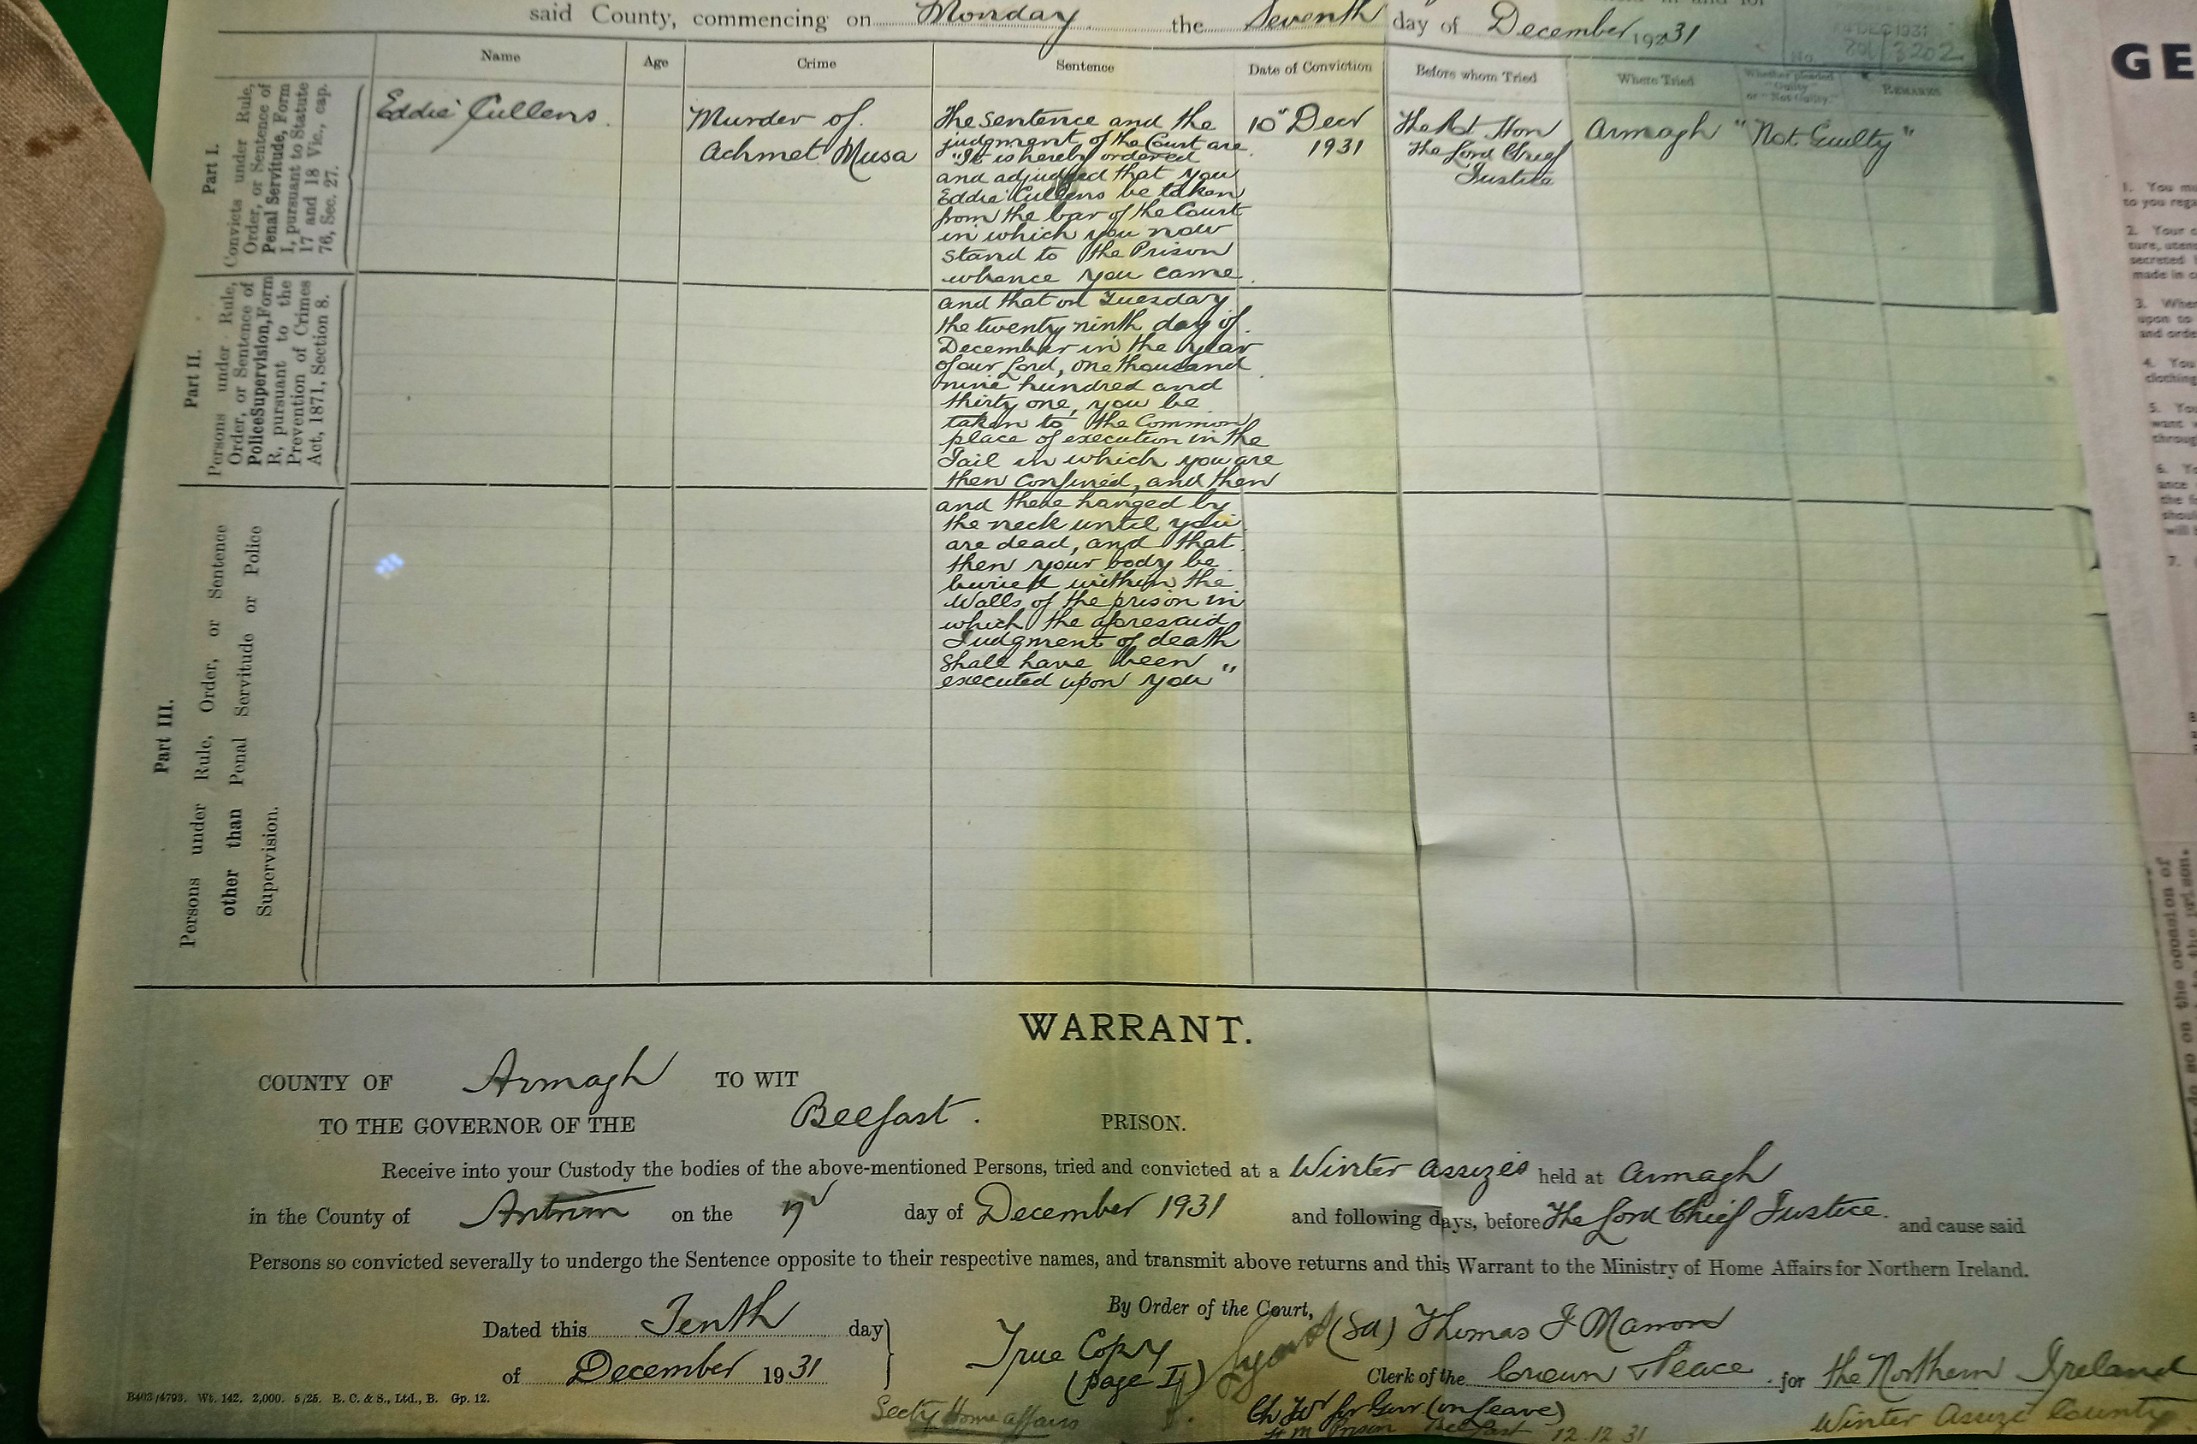 said County, commencing on Monday the Seventh day of December 1931
4 DEC 1931
No.
Name
Age
Crime
Sentence
Date of Conviction
Before whom Tried
Where Tried
Whether pleaded
"Guilty"
or "Not Guilty."
REMARKS
Part I.
Convicts under Rule,
Order, or Sentence of
Penal Servitude, Form
I, pursuant to Statute
17 and 18 Vic., cap.
76, Sec. 27.
Eddie Cullens.
Murder of
Achmet Musa
The sentence and the
judgment of the Court are
"It is hereby ordered
and adjudged that you
Eddie Cullens be taken
from the bar of the Court
in which you now
stand to the Prison
whence you came
and that on Tuesday
the twenty ninth day of
December in the year
of our Lord, one thousand
nine hundred and
thirty one, you be
taken to the Common
place of execution in the
Jail in which you are
then confined, and then
and there hanged by
the neck until you
are dead, and that
then your body be
buried within the
Walls of the prison in
which the aforesaid
Judgment of death
shall have been
executed upon you"
10" Decr
1931
The Rt Hon
The Lord Chief
Justice
Armagh
"Not Guilty"
Part II.
Persons under Rule,
Order, or Sentence of
Police Supervision, Form
R, pursuant to the
Prevention of Crimes
Act, 1871, Section 8.
Part III.
Persons under Rule, Order, or Sentence
other than Penal Servitude or Police
Supervision.
WARRANT.
COUNTY OF Armagh TO WIT
TO THE GOVERNOR OF THE Belfast. PRISON.
Receive into your Custody the bodies of the above-mentioned Persons, tried and convicted at a Winter Assizes held at Armagh
in the County of Antrim on the 7 day of December 1931 and following days, before The Lord Chief Justice. and cause said
Persons so convicted severally to undergo the Sentence opposite to their respective names, and transmit above returns and this Warrant to the Ministry of Home Affairs for Northern Ireland.
By Order of the Court,
Dated this Tenth day
of December 1931
True Copy
(page I)
Secty Home affairs
Signed (Sd) Thomas J Marron
Clerk of the Crown & Peace. for the Northern Ireland
Winter Assize County
Ch Wr for Govr (on leave)
H M Prison Belfast 12.12.31
B403/4793. Wt. 142. 2,000. 5/25. R. C. & S., Ltd., B. Gp. 12.
GE
1. You
to you
2. Your
secreted
made in
3.
upon to
4. You
clothing
5. You
want
6.
the
will
7.
on the occasion of
the prison.